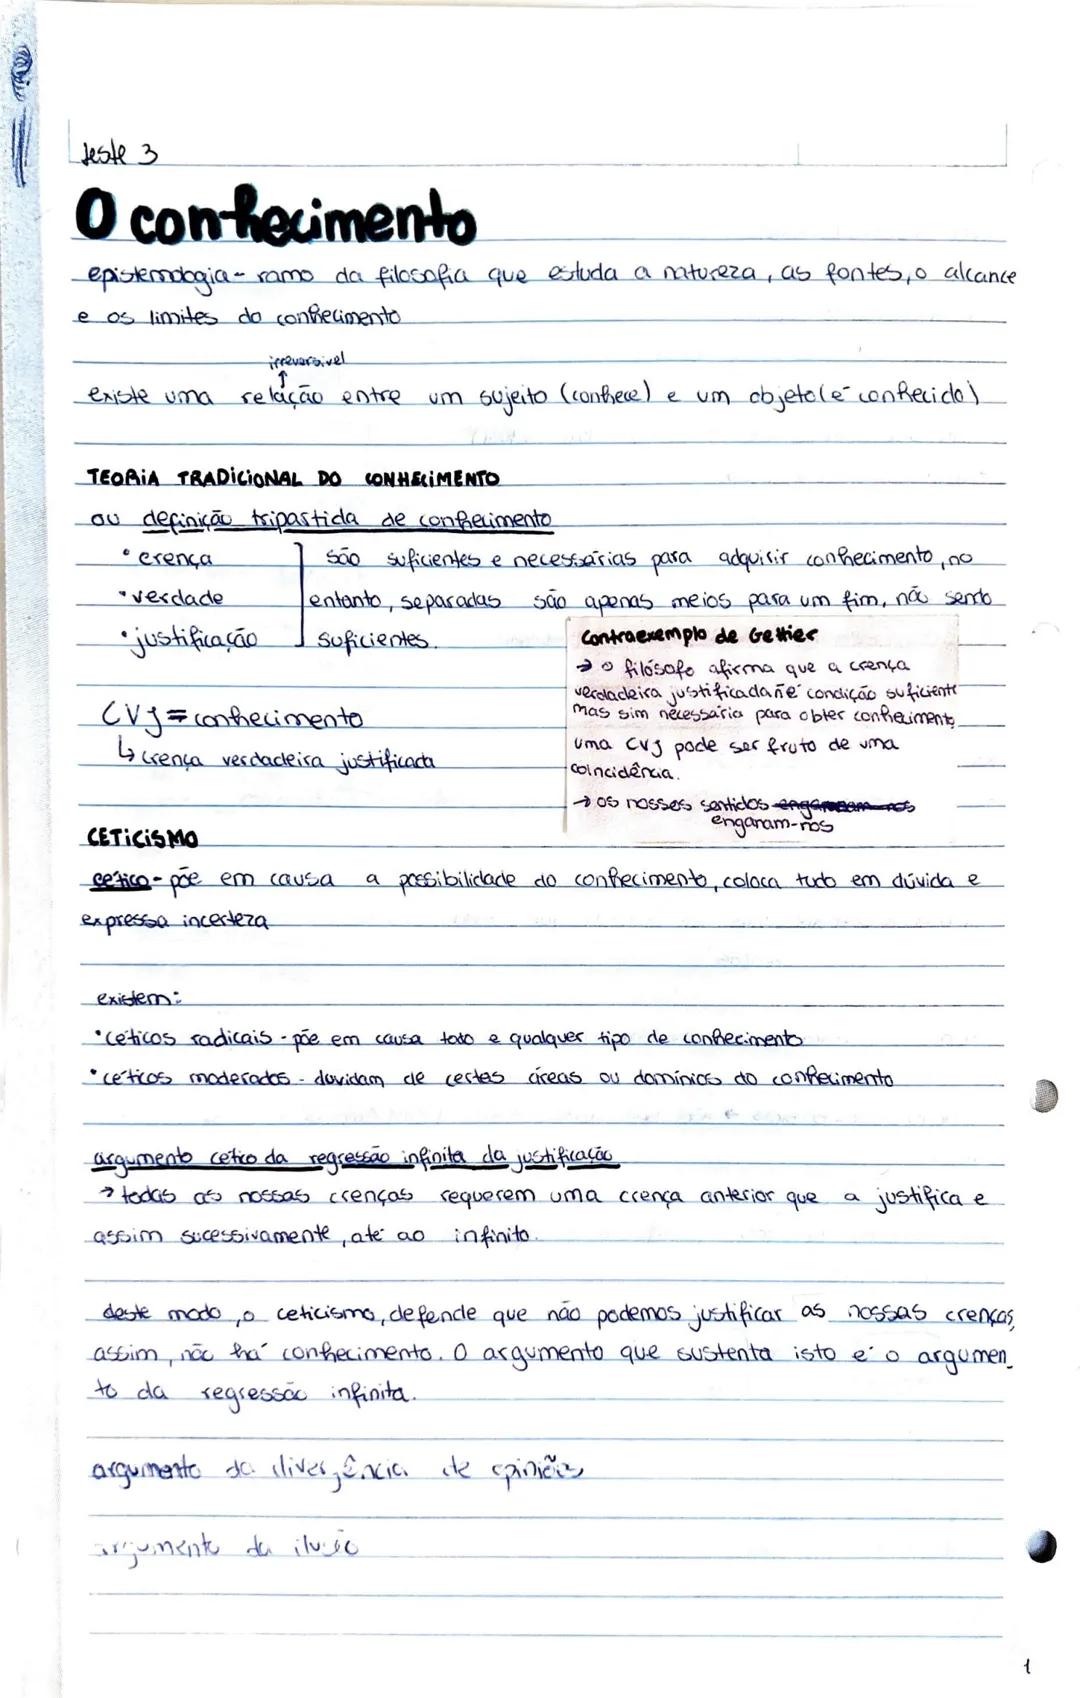 teste 3
O conhecimento
epistemologia - ramo da filosofia que estuda a natureza, as fontes, o alcance
e os limites do conhecimento
irreversivel
↑
existe uma relação entre um sujeito (conhece) e um objeto (é conhecido)
TEORIA TRADICIONAL DO CONHECIMENTO
ou definição tripartida de conhecimento
• crença
• verdade
• justificação
são suficientes e necessárias para adquirir conhecimento, no
entanto, separadas são apenas meios para um fim, não sendo
suficientes.
Contraexemplo de Gettier
→ o filósofo afirma que a crença
verdadeira justificada ñ é condição suficiente
mas sim necessária para obter conhecimento
uma CVJ pode ser fruto de uma
coincidência.
→ os nossos sentidos enganam-nos
enganam-nos
CVJ = conhecimento
↳ crença verdadeira justificada
CETICISMO
cético - põe em causa a possibilidade do conhecimento, coloca tudo em dúvida e
expressa incerteza
existem:
• céticos radicais - põe em causa todo e qualquer tipo de conhecimento
• céticos moderados - duvidam de certas áreas ou domínios do conhecimento
argumento cetico da regressão infinita da justificação
→ todas as nossas crenças requerem uma crença anterior que a justifica e
assim sucessivamente, até ao infinito.
deste modo, o ceticismo, defende que não podemos justificar as nossas crenças,
assim, não há conhecimento. O argumento que sustenta isto é o argumen_
to da regressão infinita.
argumento da divergência de opiniões
argumento da ilusão
1